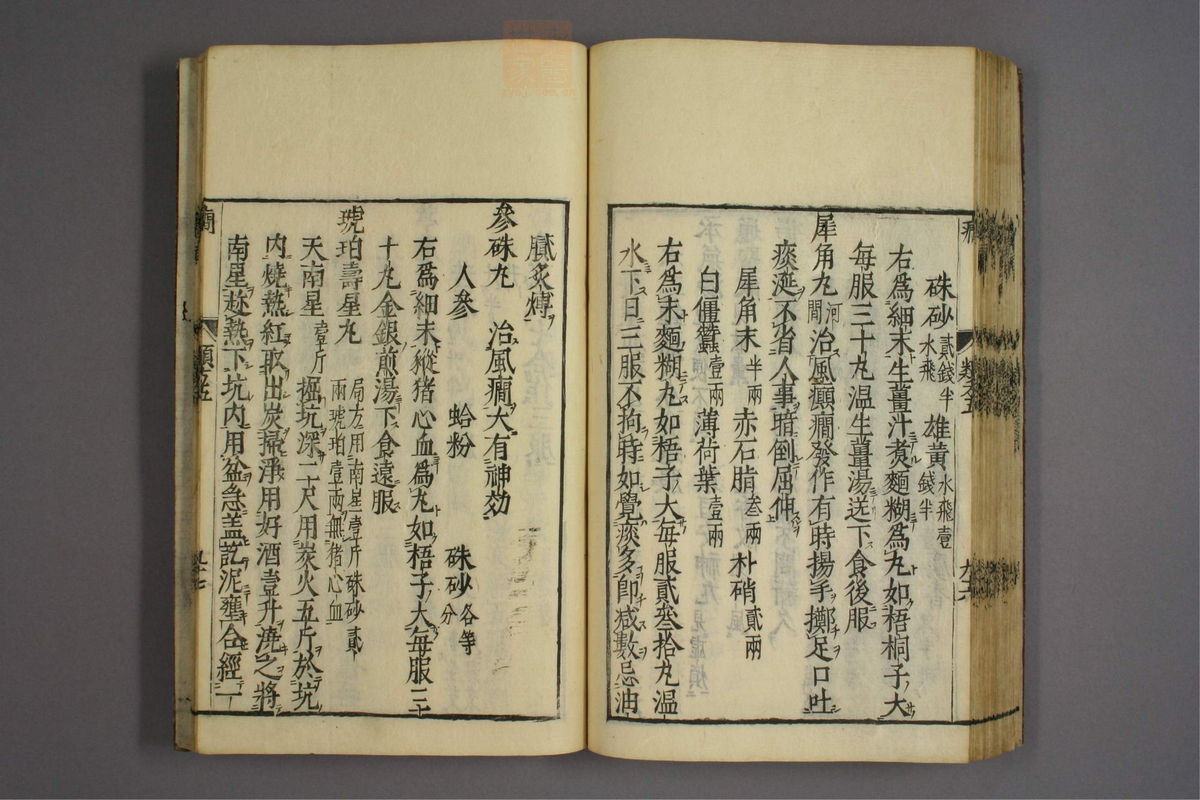 硃砂貳錢半水飛 雄黃水飛壹錢半
右爲細末生薑汁煮麵糊爲丸如梧桐子大
每服三十丸温生薑湯送下食後服
犀角丸河間治風癲癇發作有時揚手擲足口吐
痰涎不省人事暗倒屈伸
犀角末半兩 赤石脂叁兩 朴硝貳兩
白僵蠶壹兩 薄荷葉壹兩
右爲末麵糊丸如梧子大每服貳叁拾丸温
水下日三服不拘時如覺痰多卽減數忌油
膩炙煿
參硃丸 治風癇大有神効
人參 蛤粉 硃砂各等分
右爲細末䝋猪心血爲丸如梧子大每服三
十丸金銀煎湯下食遠服
琥珀壽星丸
天南星壹斤掘坑深二尺用炭火五斤於坑
局方用南星壹斤硃砂貳兩琥珀壹兩無猪心血
内燒熱紅取出炭掃淨用好酒壹升澆之將
南星趂熱下坑内用盆急盖訖泥壅合經一